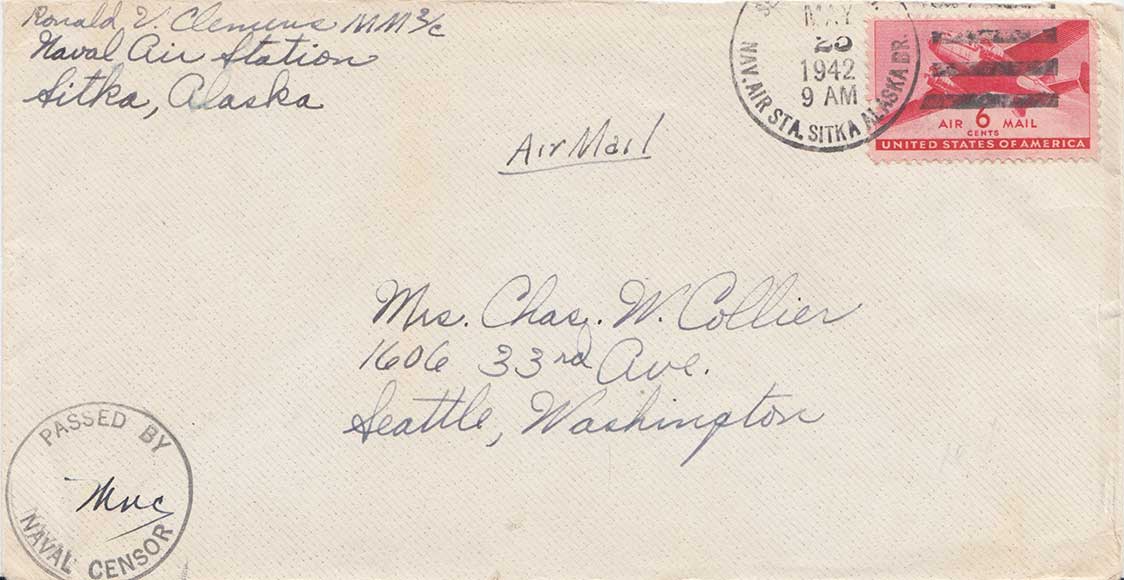 Ronald V. Clemens MM 2/c
Naval Air Station
Sitka, Alaska
MAY
1942
9 AM
NAV. AIR STA. SITKA ALASKA BR.
AIR 6 MAIL
CENTS
UNITED STATES OF AMERICA
Air Mail
Mrs. Chas. W. Collier
1606 33rd Ave.
Seattle, Washington
PASSED BY
NAVAL CENSOR